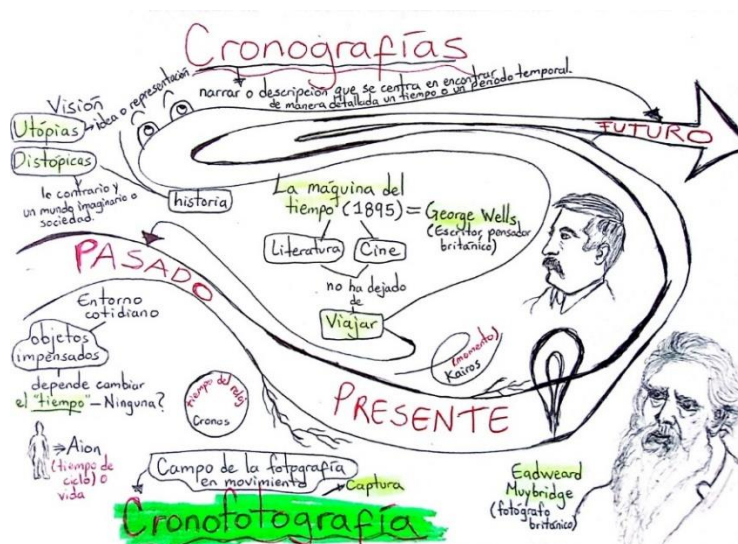 Cronografías
narrar o descripción que se centra en encontrar
de manera detallada un tiempo o un periodo temporal.
idea o representación
Visión
Utópias
Distópicas
le contrario y
un mundo imaginario o
sociedad.
historia
FUTURO
La máquina del
tiempo (1895) = George Wells
(Escritor, pensador
británico)
Literatura
Cine
no ha dejado
de
Viajar
PASADO
Entorno
cotidiano
objetos
impensados
depende cambiar
el "tiempo" – Ninguna?
tiempo del reloj
Cronos
(momento)
Kairos
PRESENTE
⇒ Aion
(tiempo de
ciclo) o
vida
Campo de la fotografía
en movimiento
Captura
Cronofotografía
Eadweard
Muybridge
(fotógrafo
británico)